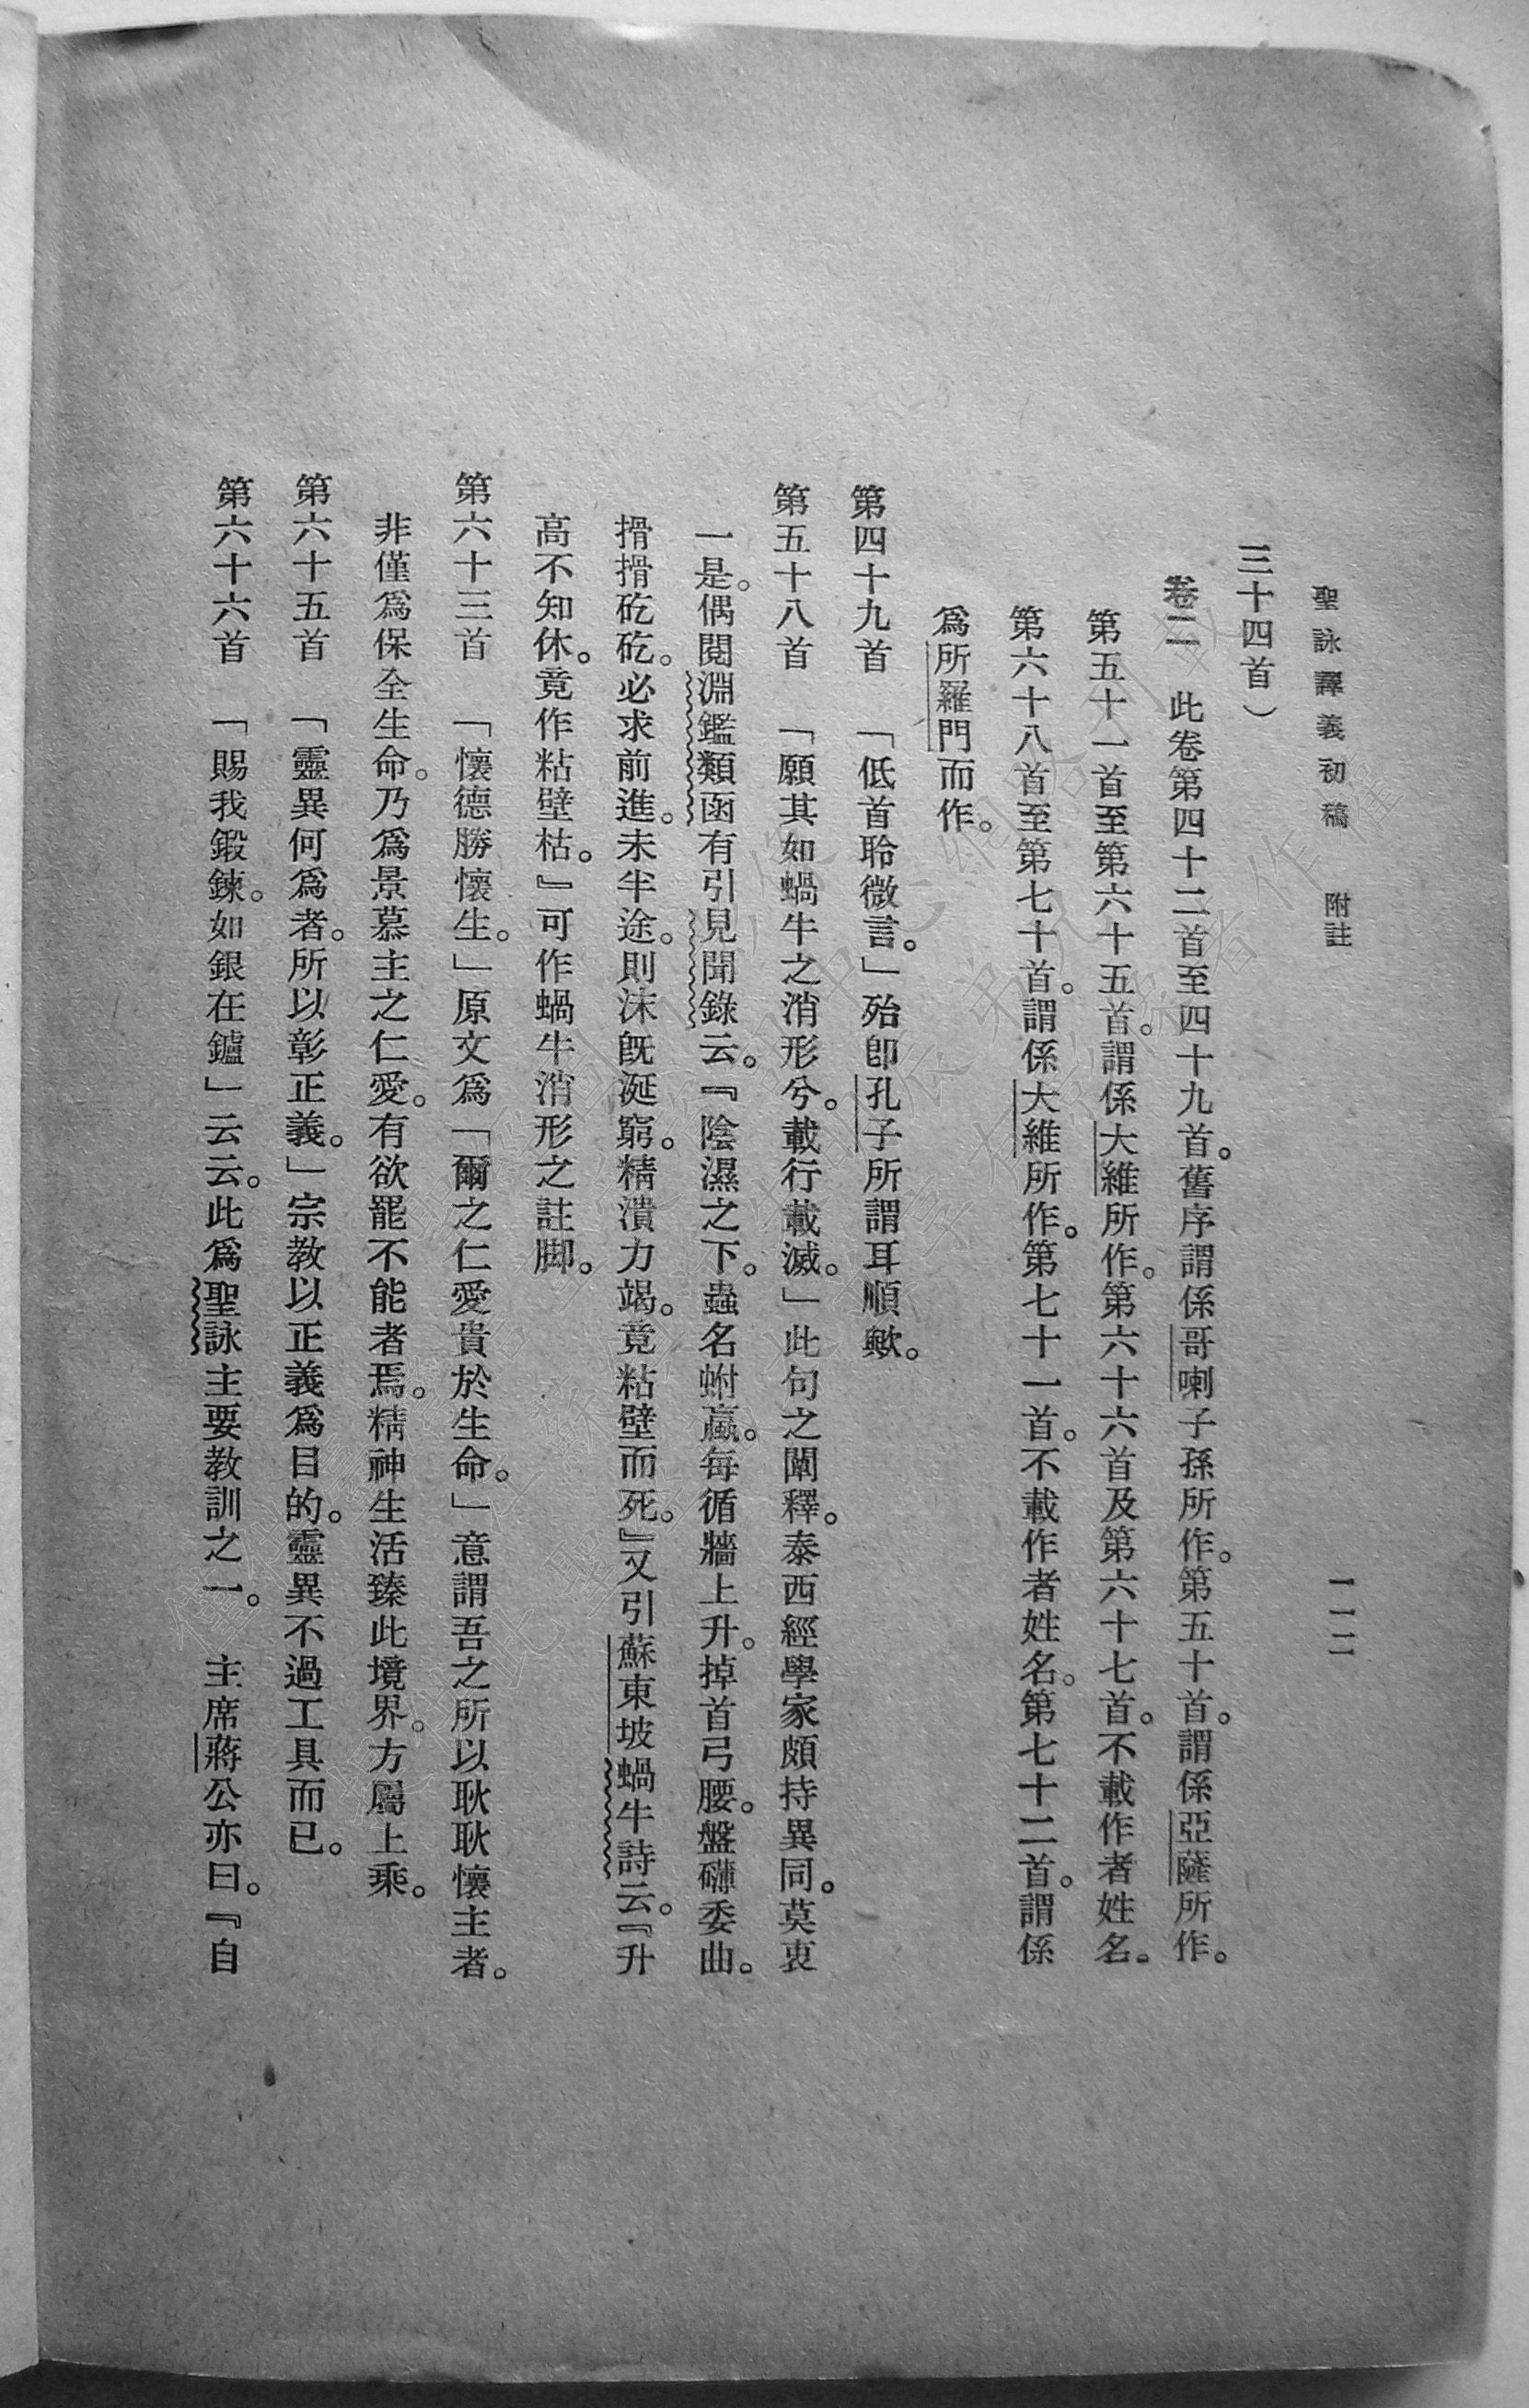 聖詠譯義初稿　附註　一一二
三十四首）
卷二　此卷第四十二首至四十九首。舊序謂係哥喇子孫所作。第五十首。謂係亞薩所作。
第五十一首至第六十五首。謂係大維所作。第六十六首及第六十七首。不載作者姓名。
第六十八首至第七十首。謂係大維所作。第七十一首。不載作者姓名。第七十二首。謂係
爲所羅門而作。
第四十九首　「低首聆微言。」殆卽孔子所謂耳順歟。
第五十八首　「願其如蝸牛之消形兮。載行載滅。」此句之闡釋。泰西經學家頗持異同。莫衷
一是。偶閱淵鑑類函有引見聞錄云。『陰濕之下。蟲名蚹蠃。每循牆上升。掉首弓腰。盤礴委曲。
搰搰矻矻。必求前進。未半途。則沫旣涎窮。精潰力竭。竟粘壁而死。』又引蘇東坡蝸牛詩云。『升
高不知休。竟作粘壁枯。』可作蝸牛消形之註脚。
第六十三首　「懷德勝懷生。」原文爲「爾之仁愛貴於生命。」意謂吾之所以耿耿懷主者。
非僅爲保全生命。乃爲景慕主之仁愛。有欲罷不能者焉。精神生活臻此境界。方屬上乘。
第六十五首　「靈異何爲者。所以彰正義。」宗教以正義爲目的。靈異不過工具而已。
第六十六首　「賜我鍛鍊。如銀在鑪」云云。此爲聖詠主要教訓之一。　主席蔣公亦曰。『自